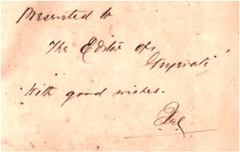 Presented to
The Editor of,
"Gujrati"
With good wishes.